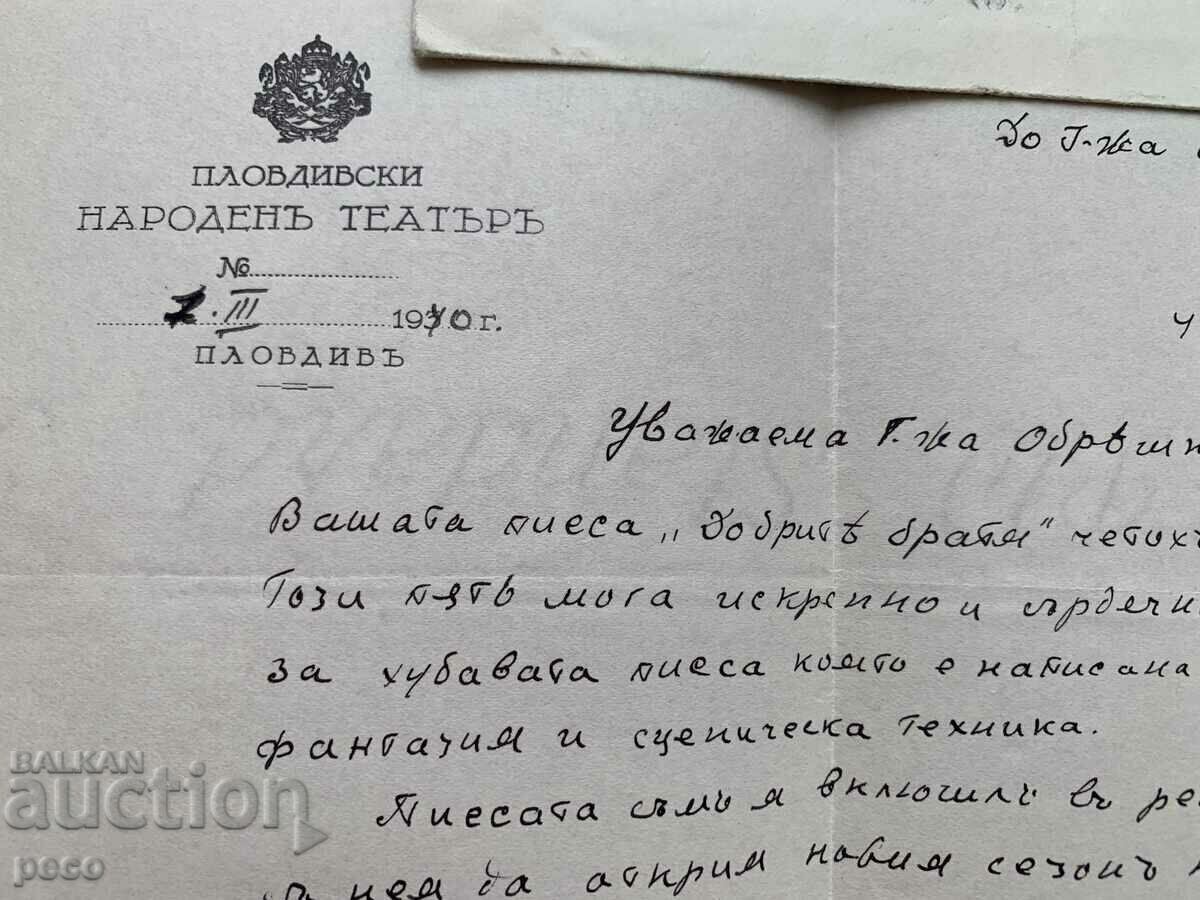 ПЛОВДИВСКИ
НАРОДЕНЪ ТЕАТЪРЪ
№
2. III 1940 г.
ПЛОВДИВЪ
До Г-жа
Уважаема Г-жа Обрѣшк
Вашата пиеса „Добритѣ братя" четохъ
Този пять мога искрепно и сърдечн
за хубавата пиеса която е написана
фантазия и сценическа техника.
Пиесата съмъ я включилъ въ ре
съ нея да открия новия сезонъ
BALKAN
auction
peco